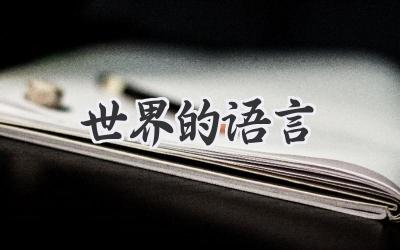 世界的语言